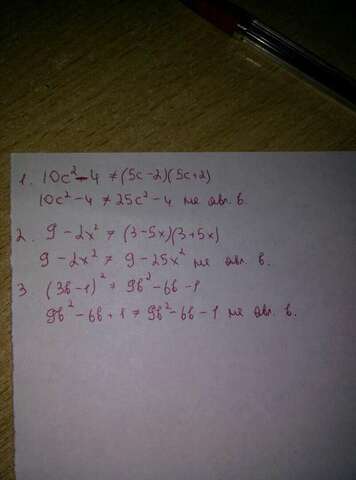 1. 10c² - 4 ≠ (5c - 2)(5c + 2)
10c² - 4 ≠ 25c² - 4 не явл. в.
2. 9 - 2x² ≠ (3 - 5x)(3 + 5x)
9 - 2x² ≠ 9 - 25x² не явл. в.
3. (3b - 1)² ≠ 9b² - 6b - 1
9b² - 6b + 1 ≠ 9b² - 6b - 1 не явл. в.